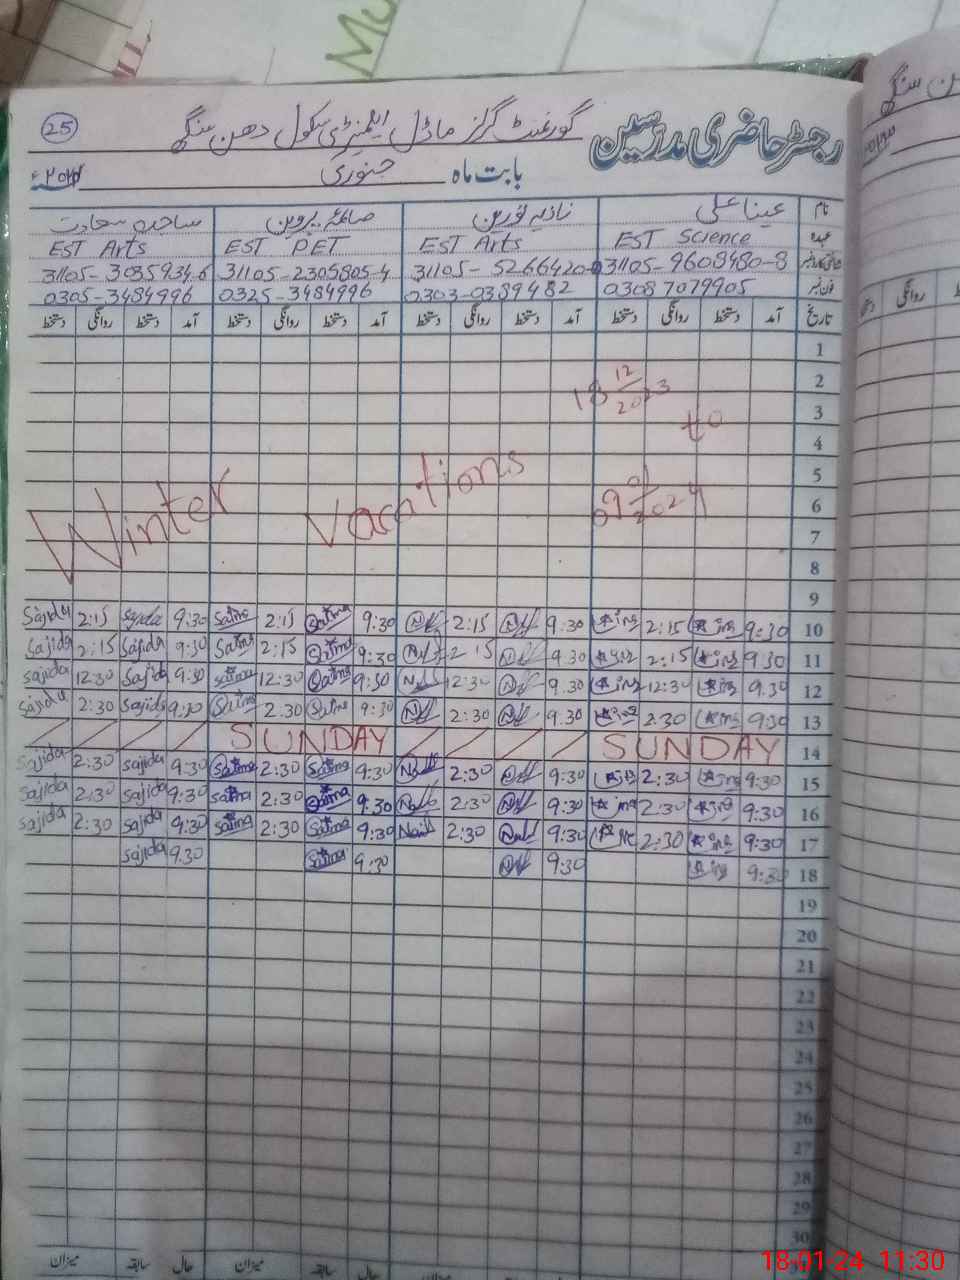 رجسٹر حاضری مدرسین گورنمنٹ گرلز ماڈل ایلیمنٹری سکول دھن سنگھ
25
بابت ماہ جنوری
نام عینا علی نازیہ نورین صائمہ پروین ساجدہ سعادت
عہدہ EST Science EST Arts EST PET EST Arts
31105-9608480-8 31105-5266420- 31105-2305805-4 31105-3085934-6
فون نمبر 03087079905 0303-0389482 0325-3484996 0305-3484996
تاریخ آمد دستخط روانگی دستخط آمد دستخط روانگی دستخط آمد دستخط روانگی دستخط آمد دستخط روانگی دستخط
1
2
18 12/2023
3
to
4
5
Winter Vacations
6
09 01/2024
7
8
9
10 9:30 2:15 9:30 2:15 9:30 2:15 9:30 Sajida 2:15 Sajida
11 9:30 2:15 9:30 2:15 9:30 2:15 9:30 Sajida 2:15 Sajida
12 9:30 12:30 9:30 12:30 9:30 12:30 9:30 Sajida 12:30 Sajida
13 9:30 2:30 9:30 2:30 9:30 2:30 9:30 Sajida 2:30 Sajida
14 SUNDAY SUNDAY
15 9:30 2:30 9:30 2:30 9:30 Saima 2:30 Saima 9:30 Sajida 2:30 Sajida
16 9:30 2:30 9:30 2:30 9:30 Saima 2:30 Saima 9:30 Sajida 2:30 Sajida
17 9:30 2:30 9:30 2:30 9:30 Saima 2:30 Saima 9:30 Sajida 2:30 Sajida
18 9:30 9:30 9:30 Saima 9:30 Sajida
19
20
21
22
23
24
25
26
27
28
29
30
حال سابقہ میزان حال سابقہ میزان
18-01-24 11:30